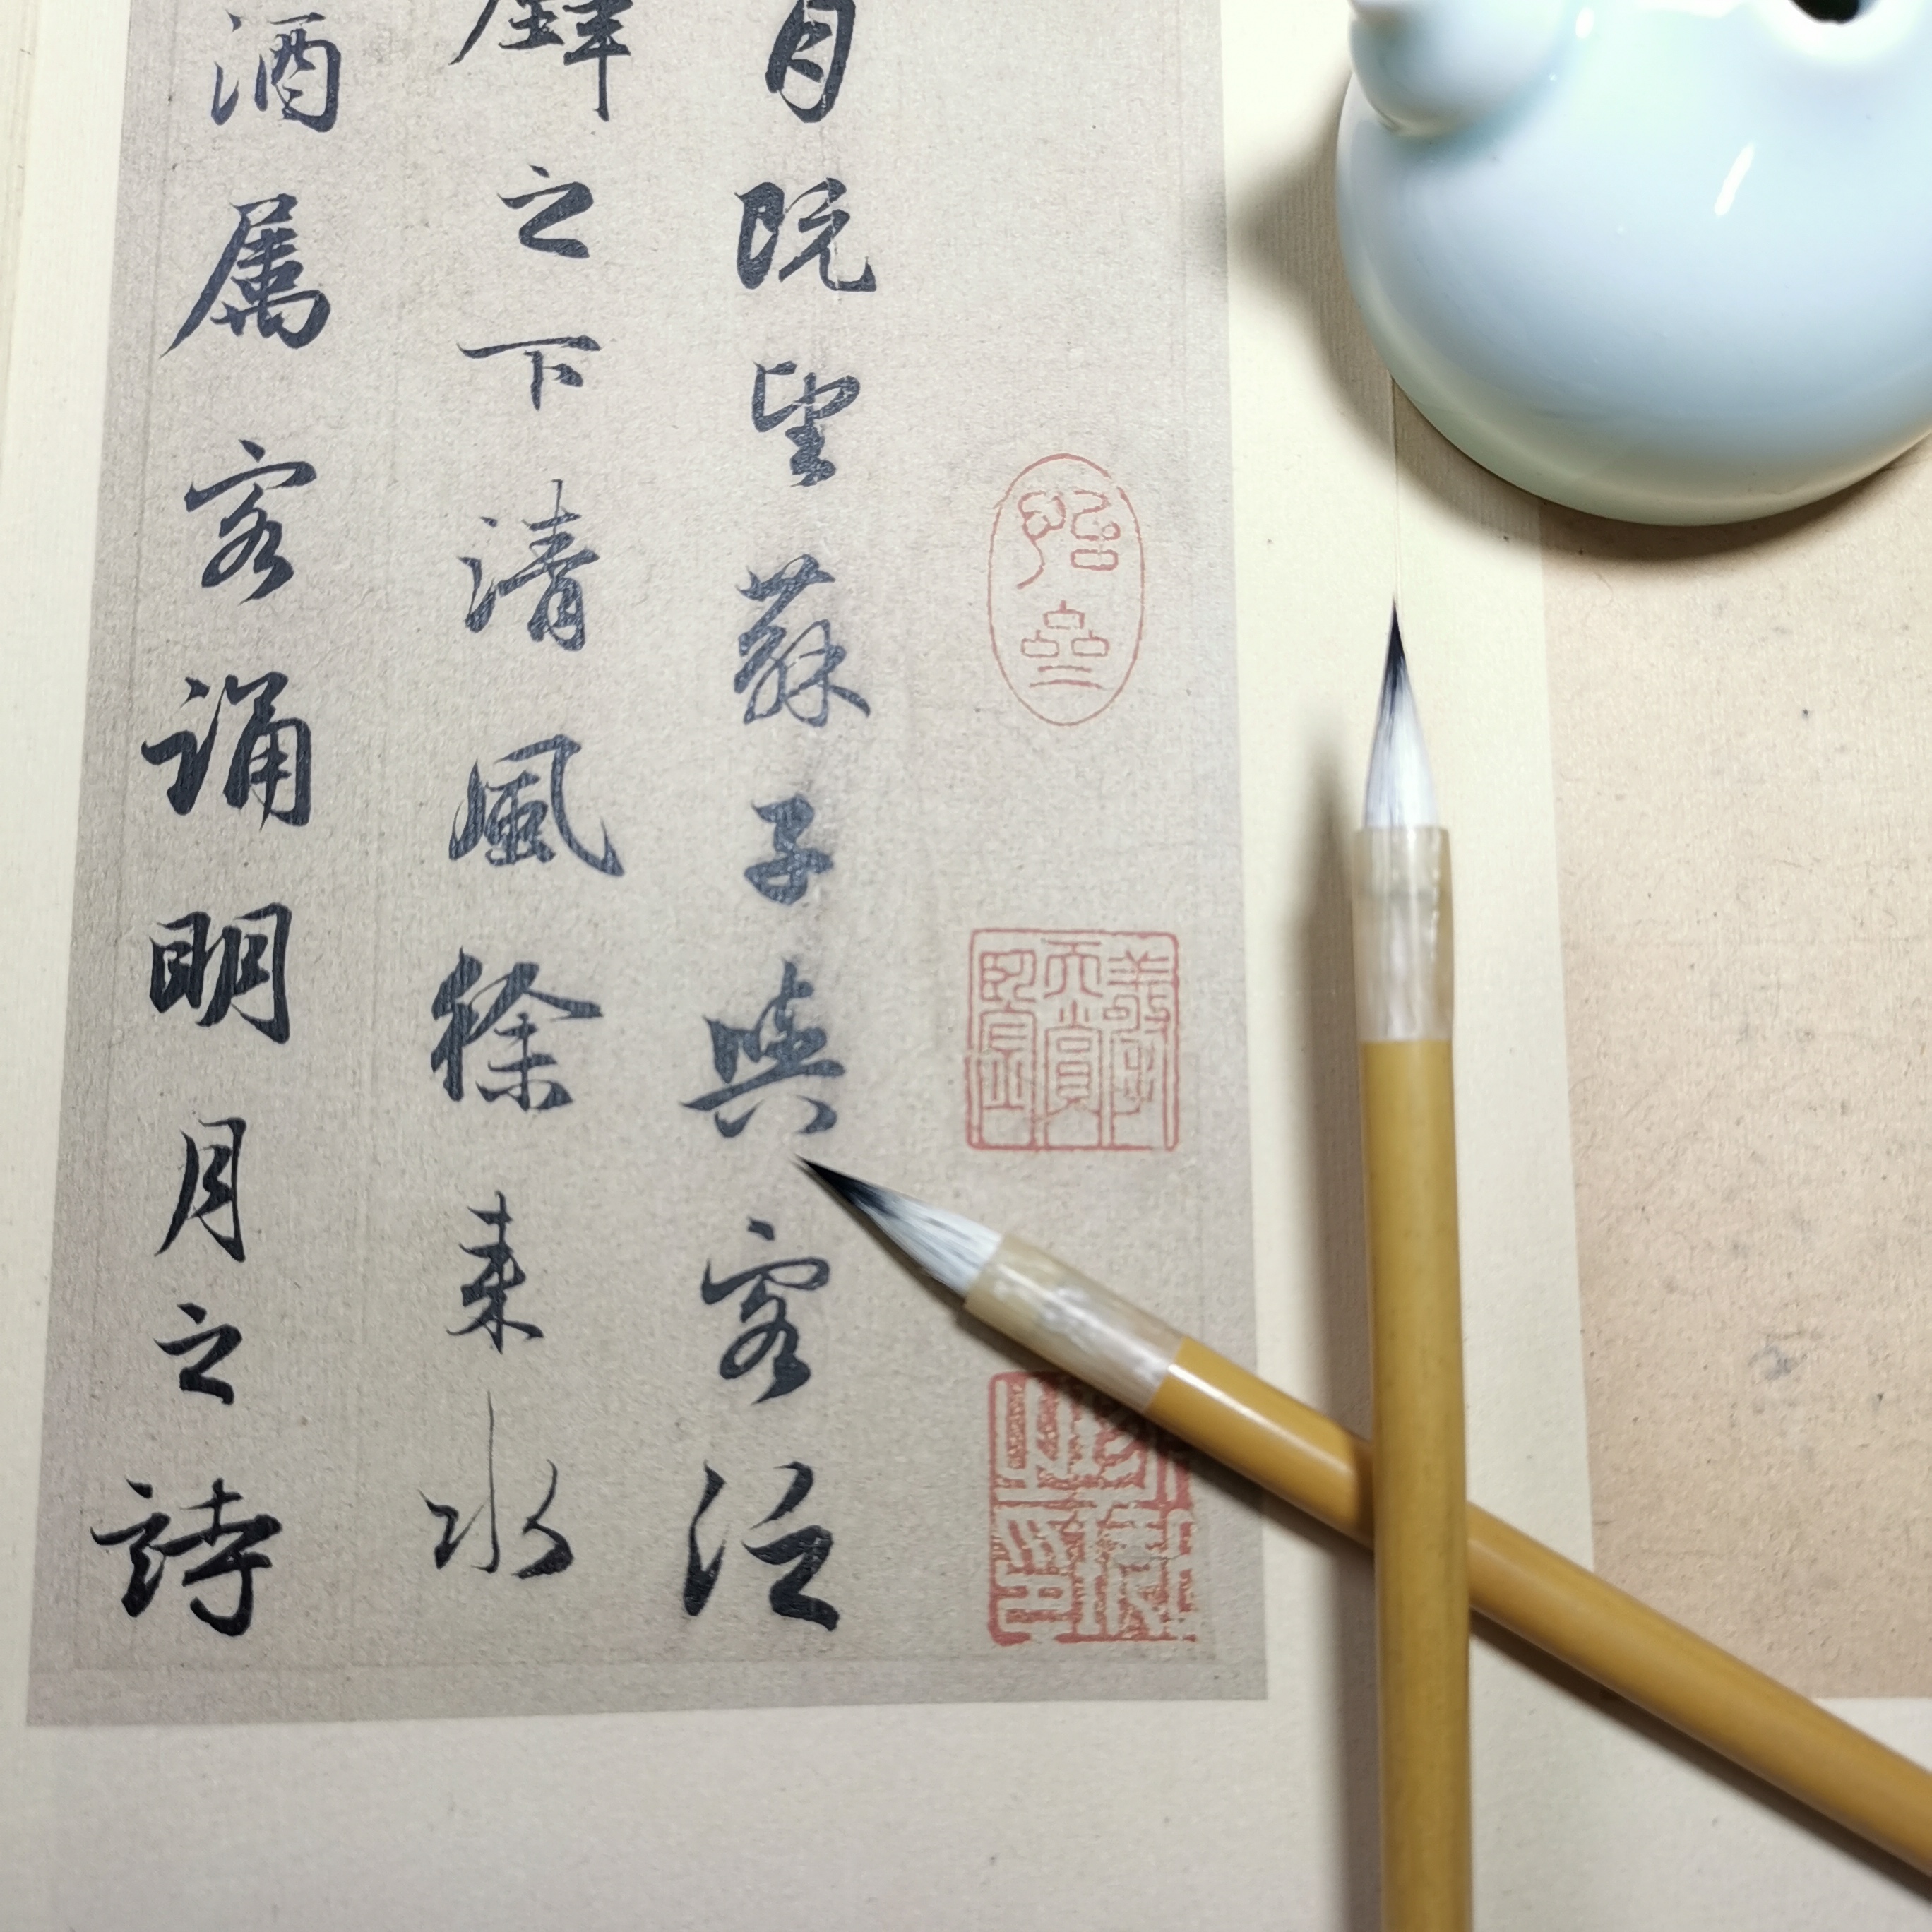 月既望蘇子與客泛
壁之下清風徐来水
酒属客誦明月之詩